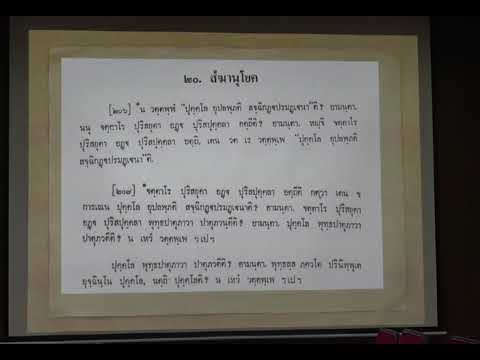 ๒๐. สํฆานุโยค
[๒๐๖] น วตฺตพฺพํ "ปุคฺคโล อุปลพฺภติ สจฺฉิกฏฺฐปรมฏฺเฐนา"ติ? อามนฺตา.
นนุ จตฺตาโร ปุริสยุคา อฏฺฐ ปุริสปุคฺคลา อตฺถีติ? อามนฺตา. หญฺจิ จตฺตาโร
ปุริสยุคา อฏฺฐ ปุริสปุคฺคลา อตฺถิ, เตน วต เร วตฺตพฺเพ "ปุคฺคโล อุปลพฺภติ
สจฺฉิกฏฺฐปรมฏฺเฐนา"ติ.
[๒๐๗] จตฺตาโร ปุริสยุคา อฏฺฐ ปุริสปุคฺคลา อตฺถีติ กตฺวา เตน จ
การเณน ปุคฺคโล อุปลพฺภติ สจฺฉิกฏฺฐปรมฏฺเฐนาติ? อามนฺตา. จตฺตาโร ปุริสยุคา
อฏฺฐ ปุริสปุคฺคลา พุทฺธปาตุภาวา ปาตุภวนฺตีติ? อามนฺตา. ปุคฺคโล พุทฺธปาตุภาวา
ปาตุภวตีติ? น เหวํ วตฺตพฺเพ ฯเปฯ
ปุคฺคโล พุทฺธปาตุภาวา ปาตุภวตีติ? อามนฺตา. พุทฺธสฺส ภควโต ปรินิพฺพุเต
อุจฺฉินฺโน ปุคฺคโล, นตฺถิ ปุคฺคโลติ? น เหวํ วตฺตพฺเพ ฯเปฯ